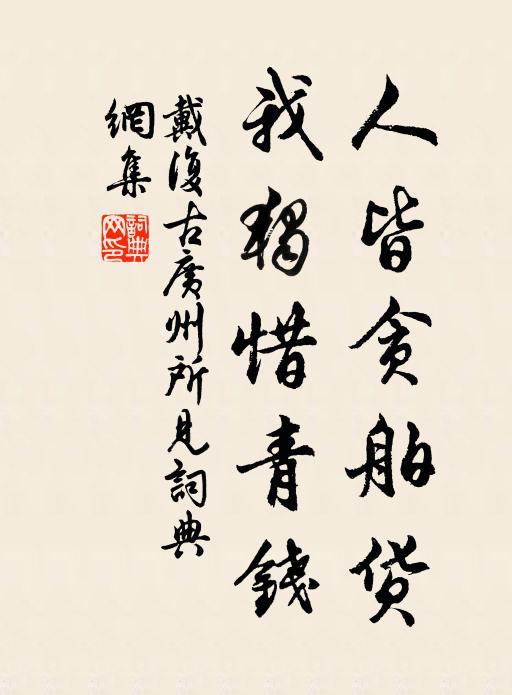 人皆贪舶货
我独惜青錢
戴復古廣州所見詞典
網集
詞典網印